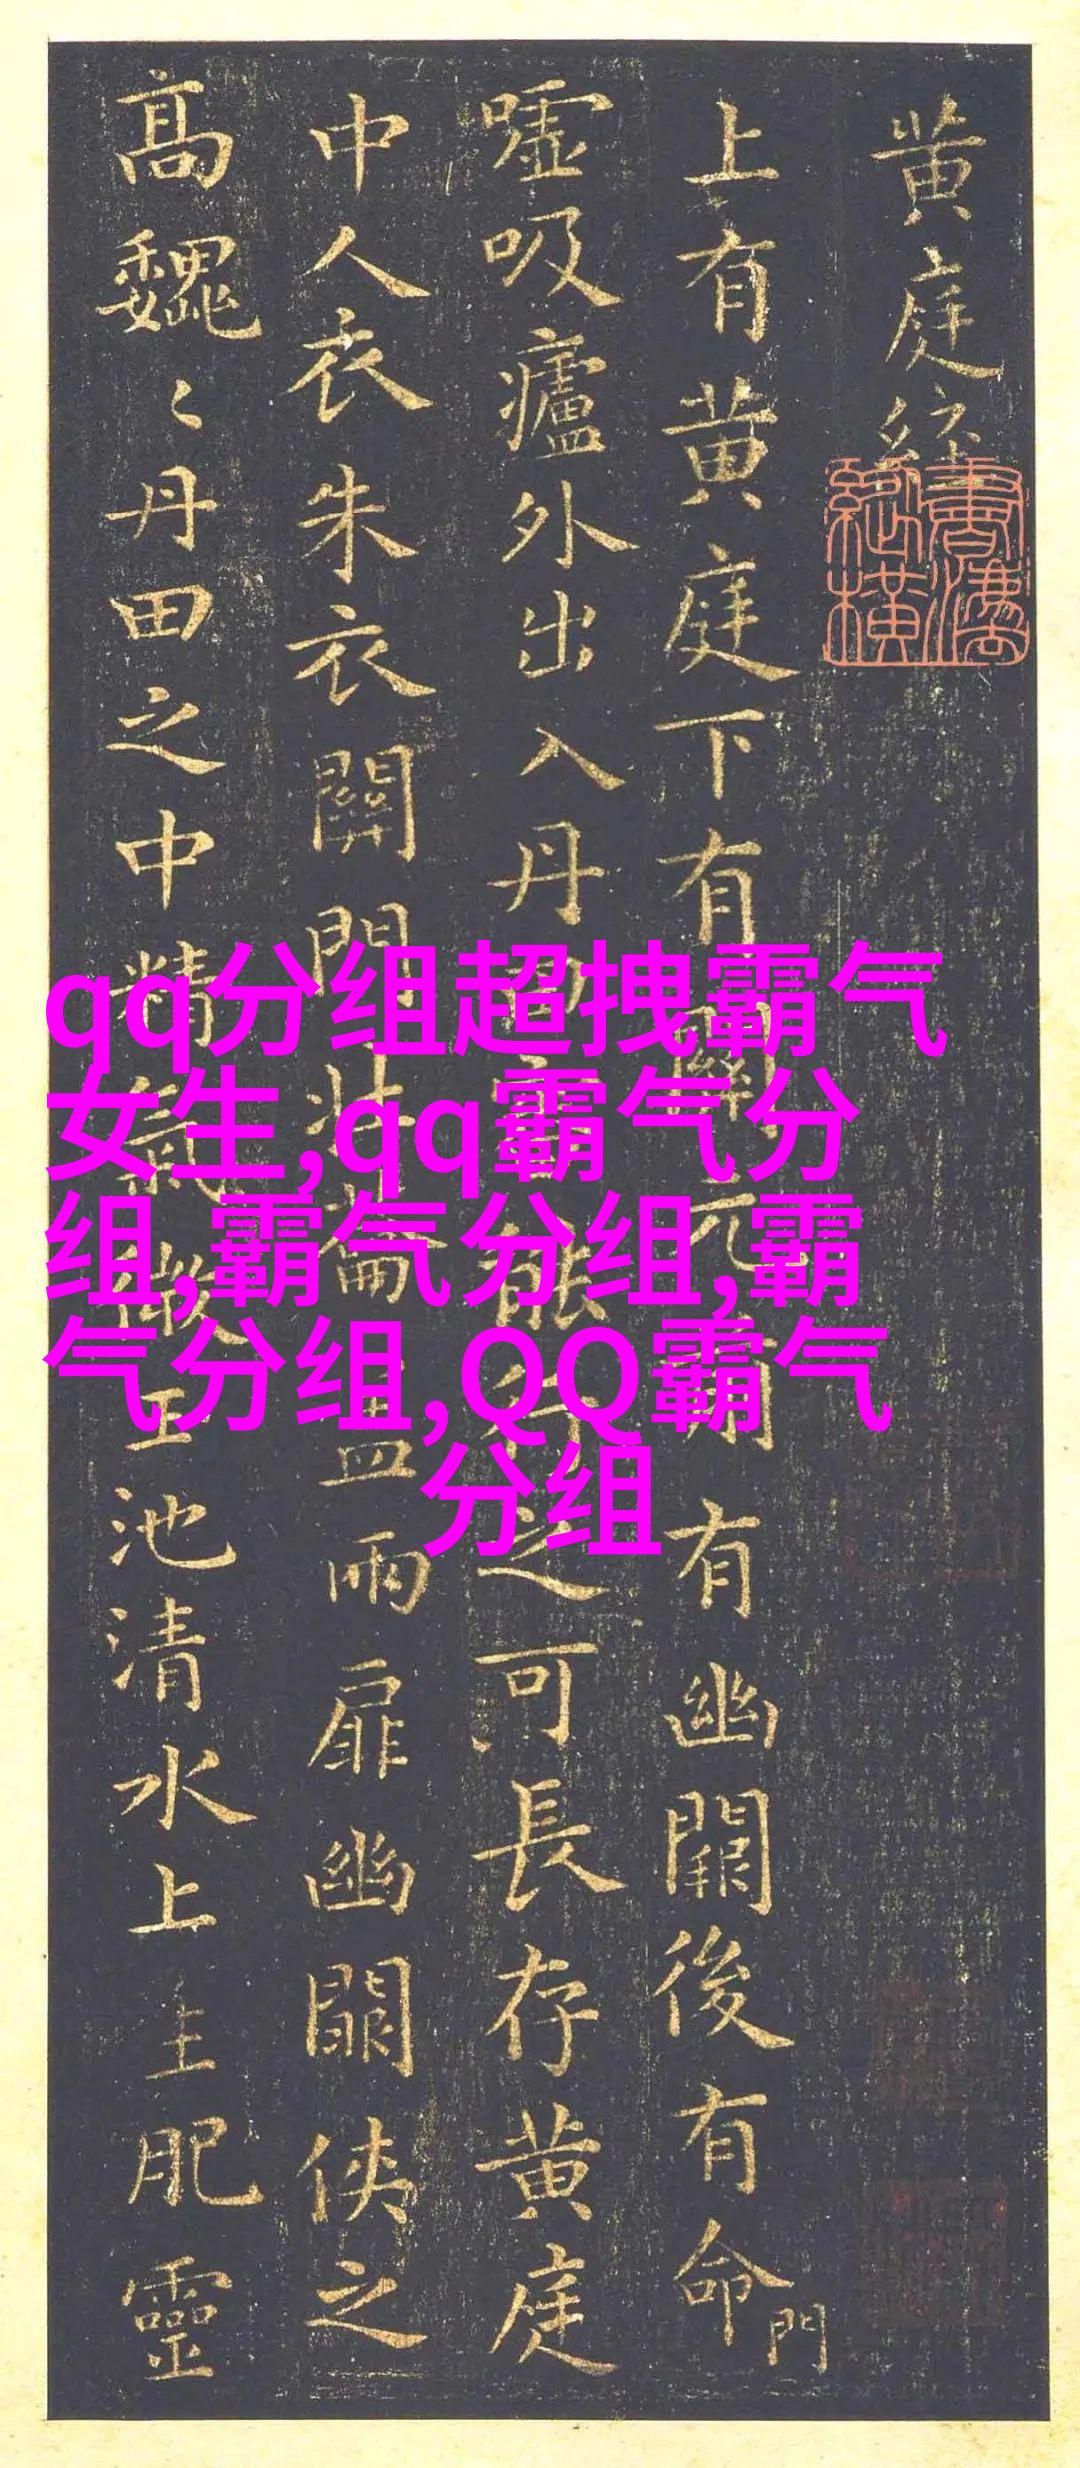 黄庭經
上有黄庭下有關元前有幽闕後有命門
嘘吸廬外出入丹田審能行之可長存黄庭
中人衣朱衣關門壯籥蓋兩扉幽闕俠之
高魏〻丹田之中精氣微玉池清水上生肥靈
qq分组超拽霸气
女生,qq霸气分
组,霸气分组,霸
气分组,QQ霸气
分组